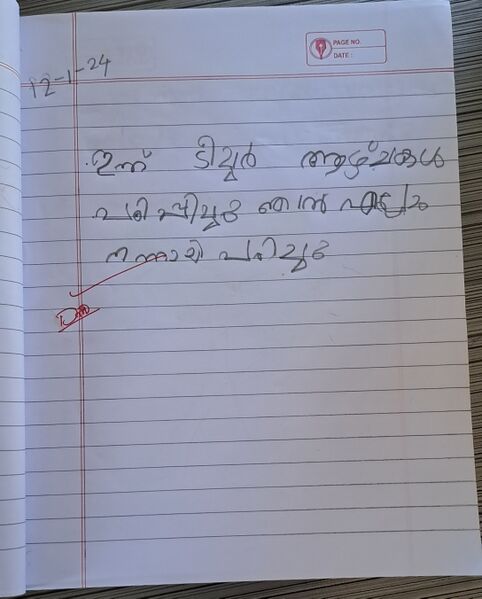 PAGE NO.
DATE :
12-1-24
ഇന്ന് ടീച്ചർ ആഴ്ചകൾ
പഠിപ്പിച്ചു ഞാൻ എല്ലാം
നന്നായി പഠിച്ചു